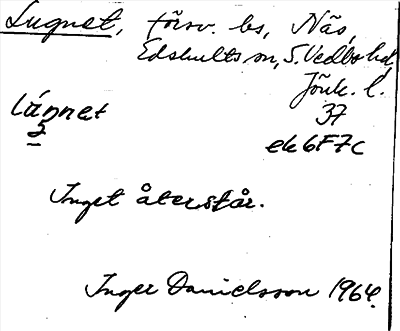 Lugnet, försv. bs, Näs,
Edshults sn, S. Vedbo hd,
Jönk. l.
37
ek 6F7c
lánnet
2
Inget återstår.
Inger Danielsson 1964.